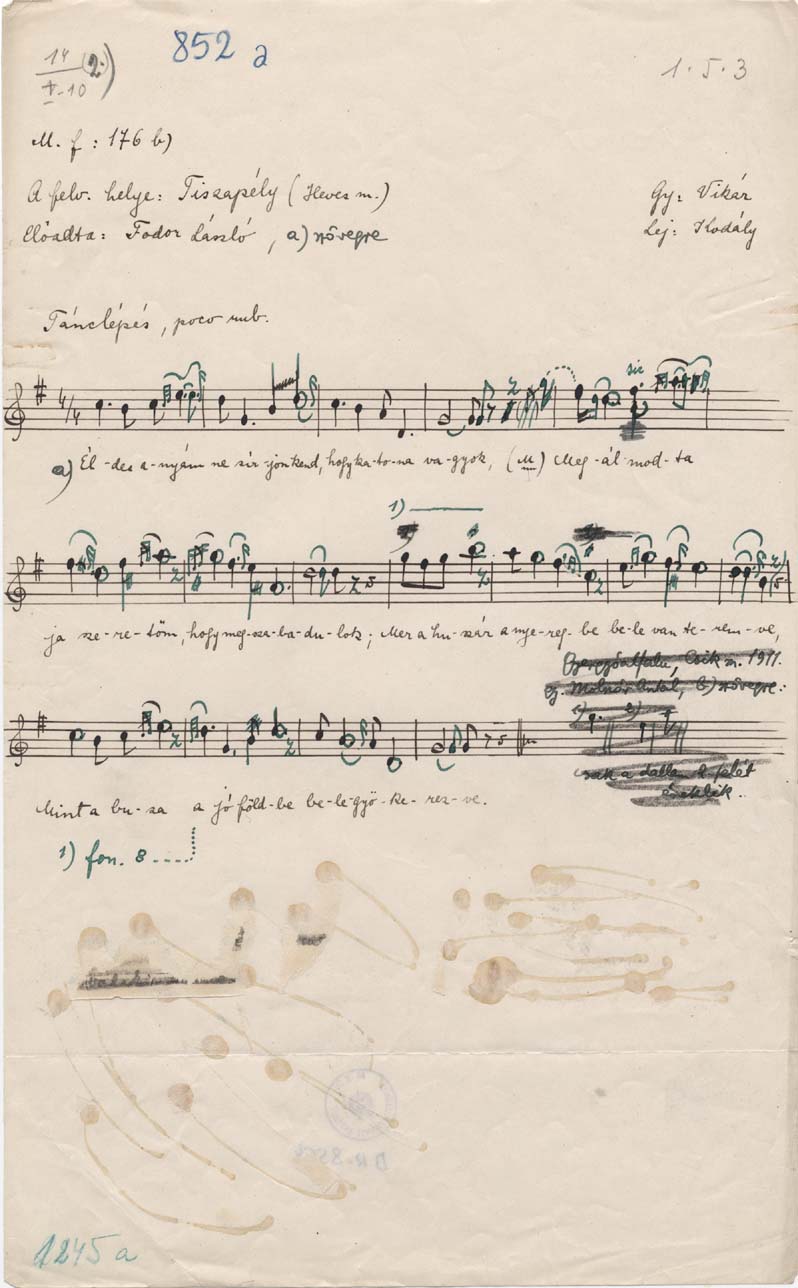 14 (2.)
V-10
852 a
1 · 5 · 3
M. f: 176 b)
A felv. helye: Tiszapély (Heves m.)
Gy: Vikár
Előadta: Fodor László, a) szövegre
Lej: Kodály
Tánclépés, poco rub.
4/4
sic
a) Él-des a-nyám ne sír-jon kend, hogy ka-to-na va-gyok, (M) Meg-ál-mod-ta
1)
ja sze-re-tőm, hogy meg-sza-ba-du-lok; Mer a hu-szár a nye-reg-be be-le van te-rem-ve,
Csik m. 1911.
Molnár Antal, b) szövegre:
Mint a bu-za a jó föld-be be-le-gyö-ke-rez-ve.
1) fon. 8
1245 a